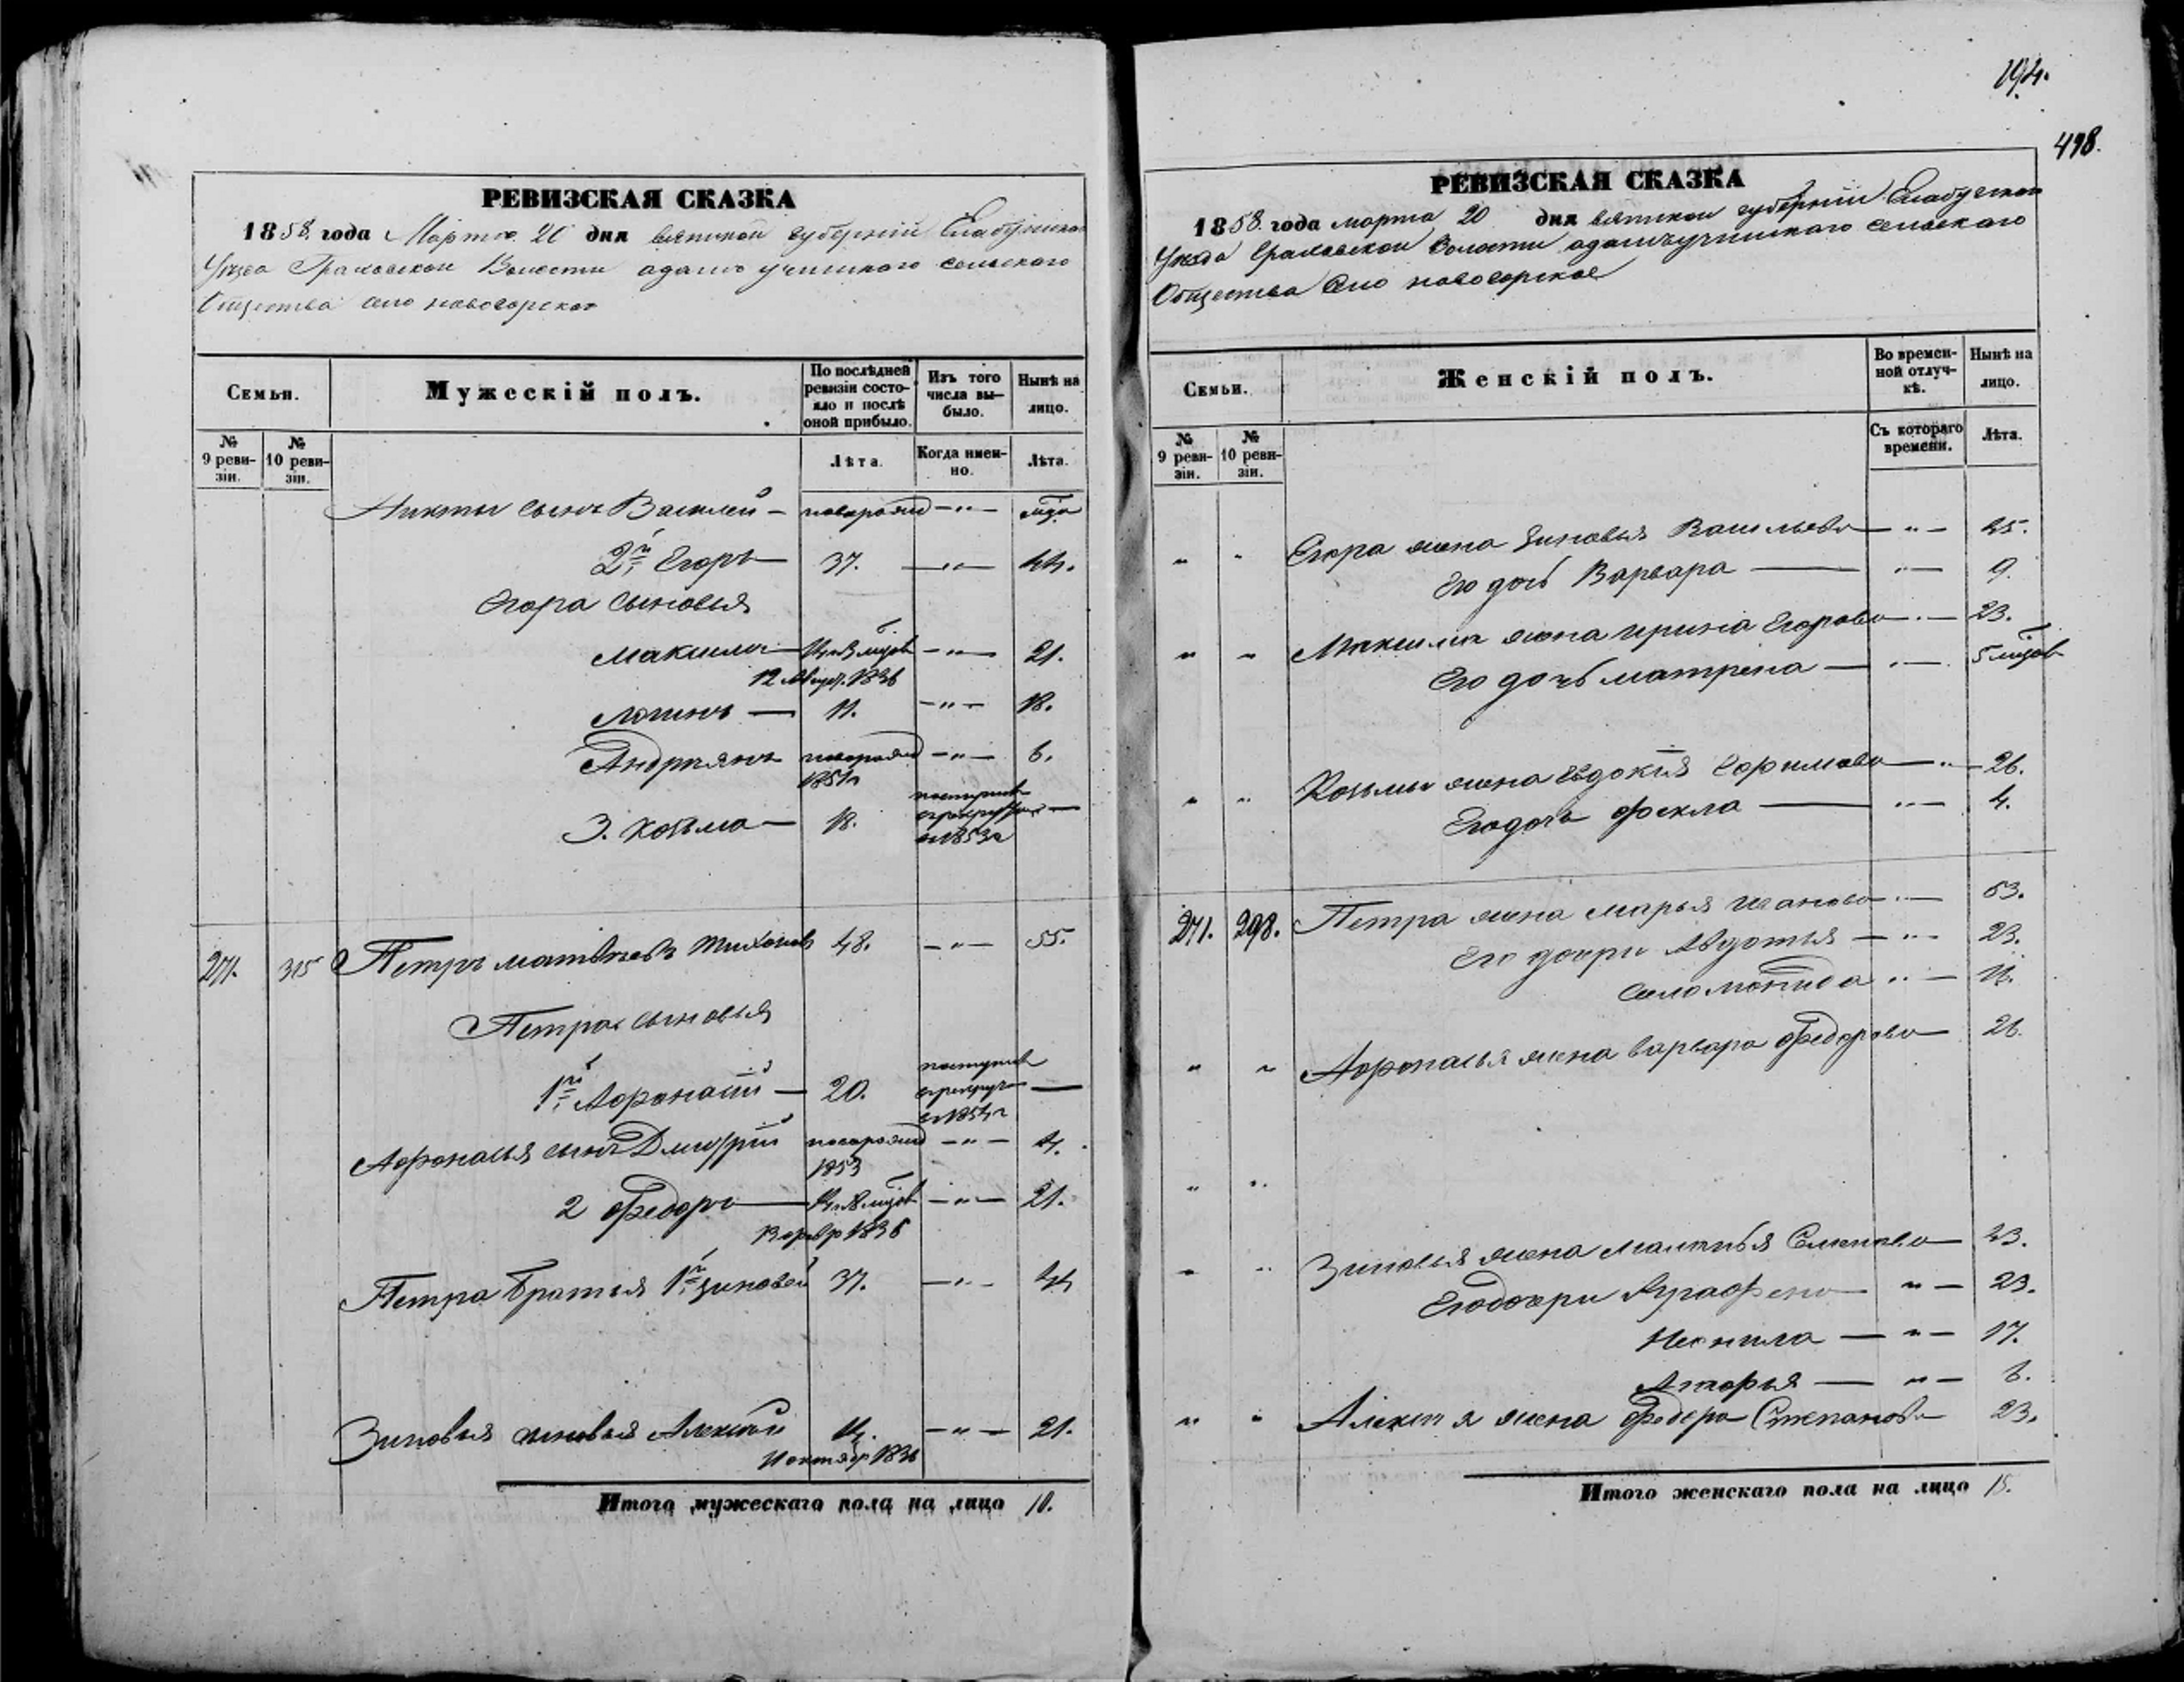 РЕВИЗСКАЯ СКАЗКА
1858 года Марта 20 дня вятской губерніи Елабужскои
Уезда Граховской Волости адамъ учинскаго сельскаго
Общества село новогорское
Семьи.
Мужескій полъ.
По послѣдней ревизіи состо-яло и послѣ оной прибыло.
Изъ того числа вы-было.
Нынѣ на лицо.
№ 9 реви-зіи.
№ 10 реви-зіи.
Лѣта.
Когда имен-но.
Лѣта.
Никиты сынъ Василей — новорожд — " —
2й Егоръ — 37. — " — 44.
Егора сыновья
Максимъ — 14 — " — 21.
12 1836
Логинъ — 11. — " — 18.
Андріянъ новорожд — " — 6.
1851г
3. Козьма — 18. поступив в рекруты — в 1853г
271. 315 Петръ матвѣевъ Тихоновъ 48. — " — 55.
Петра сыновья
1й Афонасій — 20. поступив в рекруты — в 1854г
Афонасья сынъ Дмитрій новорожд — " — 4.
1853
2 Федоръ — 14 — " — 21.
1836
Петра братья 1й зиновей 37. — " — 44
Зиновья сыновья Алексѣй 14. — " — 21.
октябр 1836
Итого мужескаго пола на лицо 10.
194.
498.
РЕВИЗСКАЯ СКАЗКА
1858 года марта 20 дня вятской губерніи Елабужской
Уезда Граховской Волости адамъучинскаго сельскаго
Общества село новогорское
Семьи.
Женскій полъ.
Во времен-ной отлуч-кѣ.
Нынѣ на лицо.
№ 9 реви-зіи.
№ 10 реви-зіи.
Съ котораго времени.
Лѣта.
" " Егора жена Зиновья Васильева — " — 45.
Его дочь Варвара — " — 9.
" " Максима жена ирина Егорова — " — 23.
Его дочь матрена — " — 5 месяцов
" " Козьмы жена Евдокія Ефимова — " — 26.
Его дочь фекла — " — 4.
271. 298. Петра жена марья иванова " — 53.
Его дочери Авдотья — " — 23.
Соломонида " —
" " Афонасья жена варвара Федорова — 26.
" "
" " Зиновья жена Семенова — 43.
Его дочери Аграфена — " — 23.
Неонила — " — 17.
— " — 6.
" " Алексѣя жена Федора Степанова — 23.
Итого женскаго пола на лицо 15.